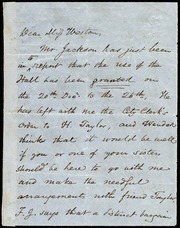 Dear Miss Weston,
Mr. Jackson has just been
in to report that the use of the
Hall has been granted on
the 20th Decr. to the 26th. He
has left with me the City Clerk's
order to H. Taylor, and Wendell
thinks that it would be well
if you or one of your sisters
should be here to go with
me and make the needful
arrangements with friend Taylor.
F. J. says that a distinct bargain